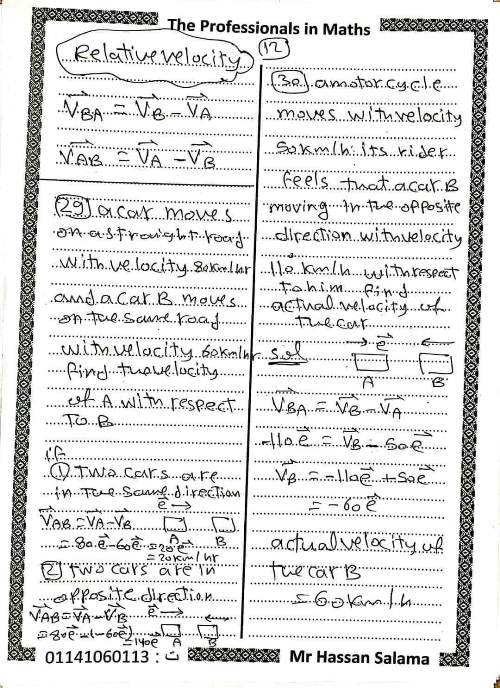 The Professionals in Maths
12
Relative velocity
V⃗BA = V⃗B - V⃗A
V⃗AB = V⃗A - V⃗B
29) a car moves
on a straight road
with velocity 80km/hr
and a car B moves
on the same road
with velocity 60km/hr
find the velocity
of A with respect
to B
if
① two cars are
in the same direction
e⃗ →
V⃗AB = V⃗A - V⃗B
A B
= 80e⃗ - 60e⃗ = 20e⃗
= 20km/hr
2 two cars are in
opposite direction
V⃗AB = V⃗A - V⃗B e⃗ → ←
= 80e⃗ - (-60e⃗) = 140e⃗ A B
30) a motor cycle
moves with velocity
50km/h its rider
feels that a car B
moving in the opposite
direction with velocity
110 km/h with respect
to him find
actual velocity of
the car
sol
→ e⃗ ←
A B
V⃗BA = V⃗B - V⃗A
-110e⃗ = V⃗B - 50e⃗
V⃗B = -110e⃗ + 50e⃗
= -60e⃗
actual velocity of
the car B
= 60km/h
01141060113 : ت
Mr Hassan Salama